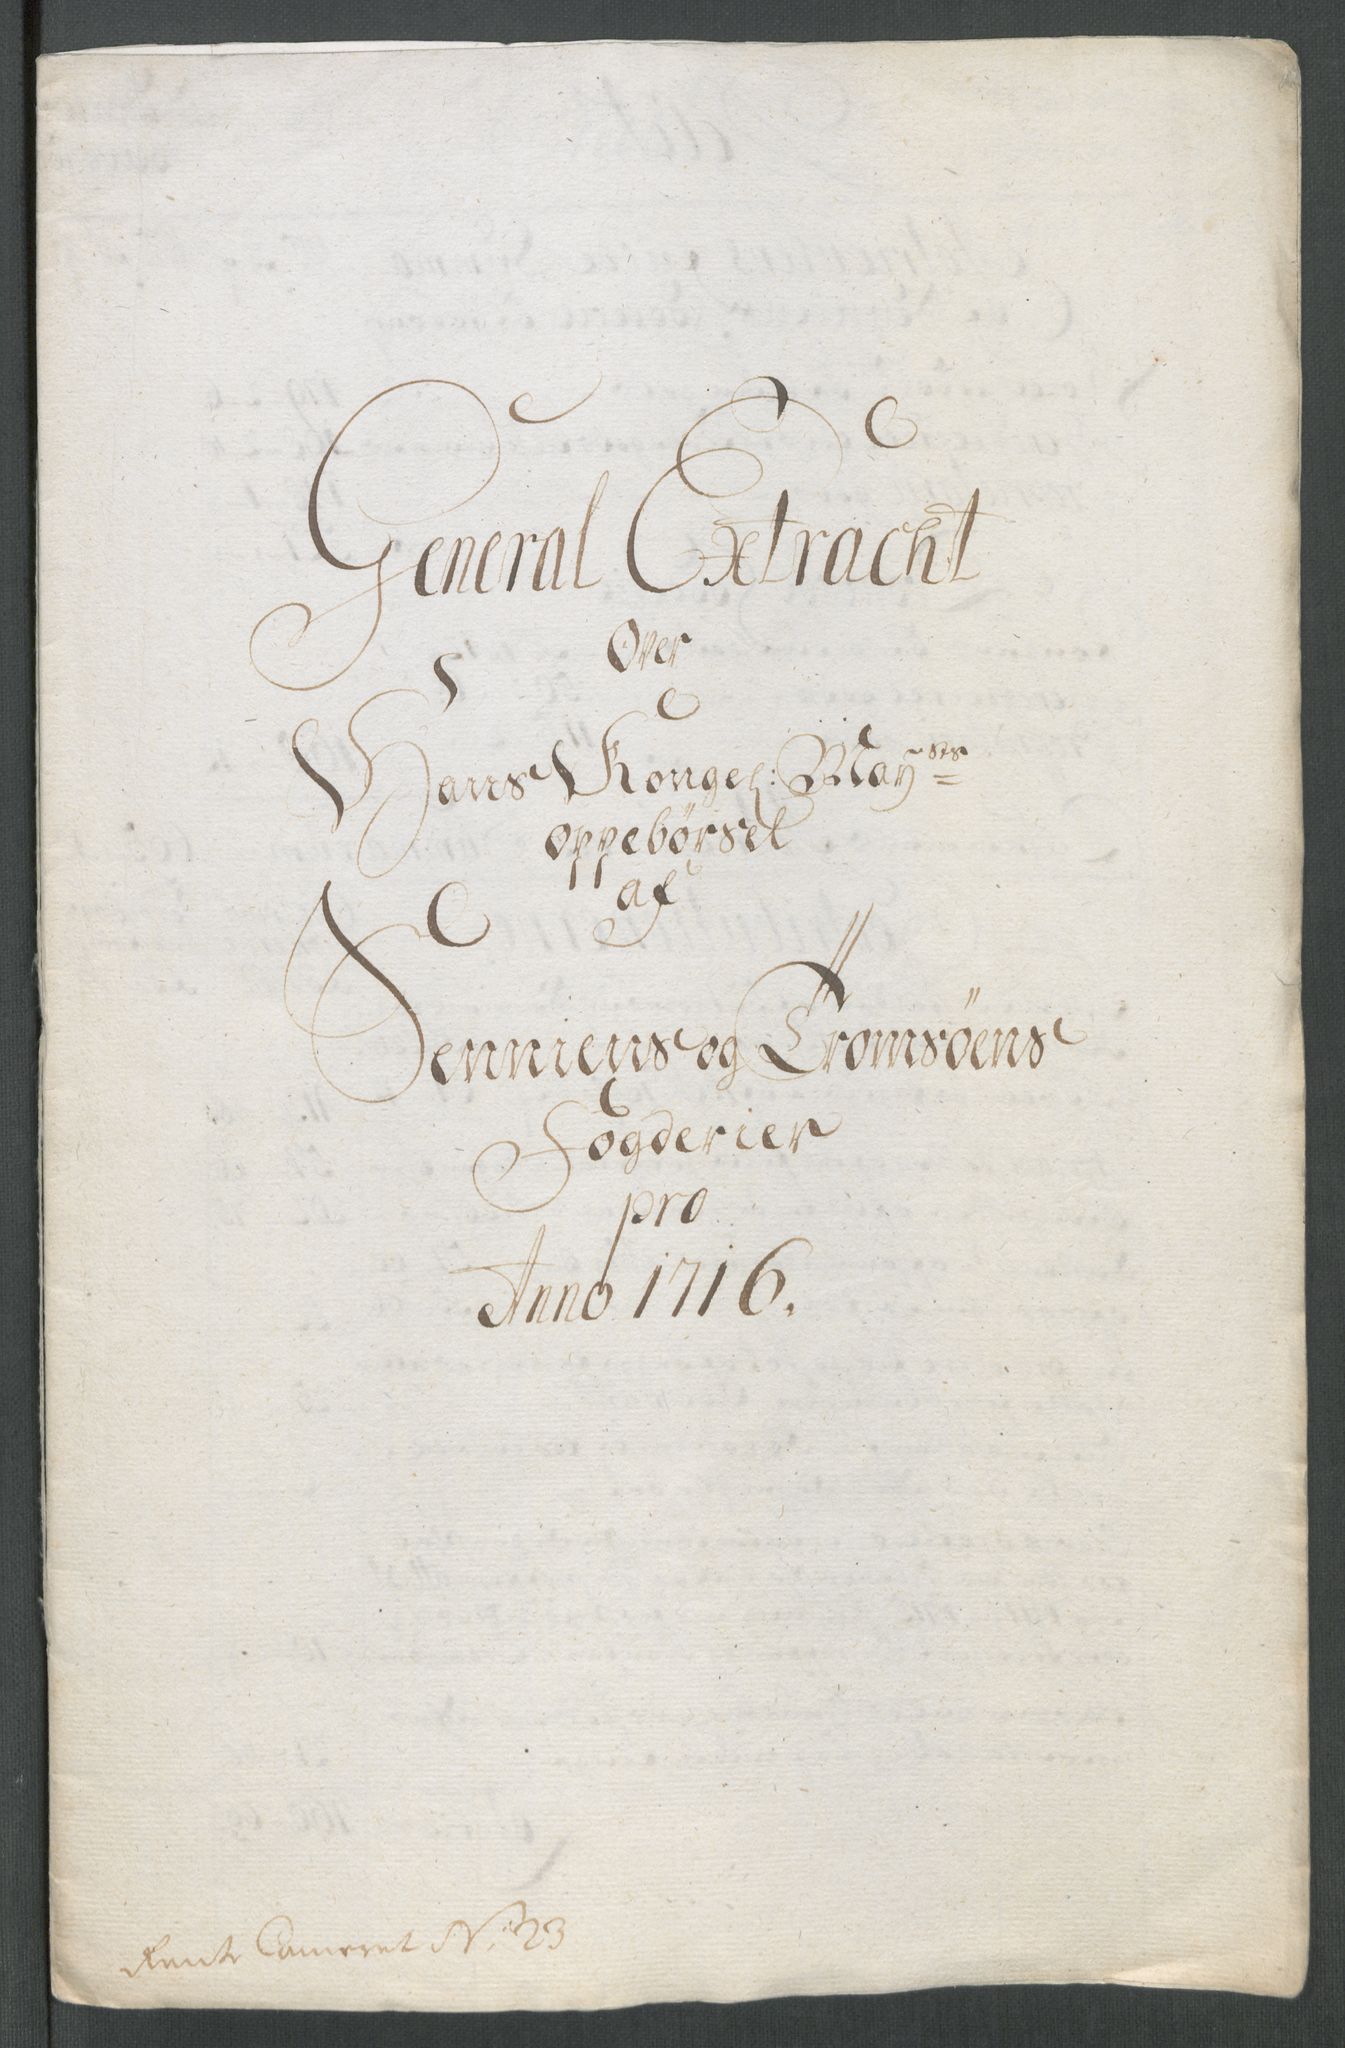 General Extracht
Over
Hans Kongel: Mayˢᵗˢ
oppebørsel
af
Senniens og Tromsöens
Fogderier
pro
Anno 1716.
Rente Cammeret N: 23